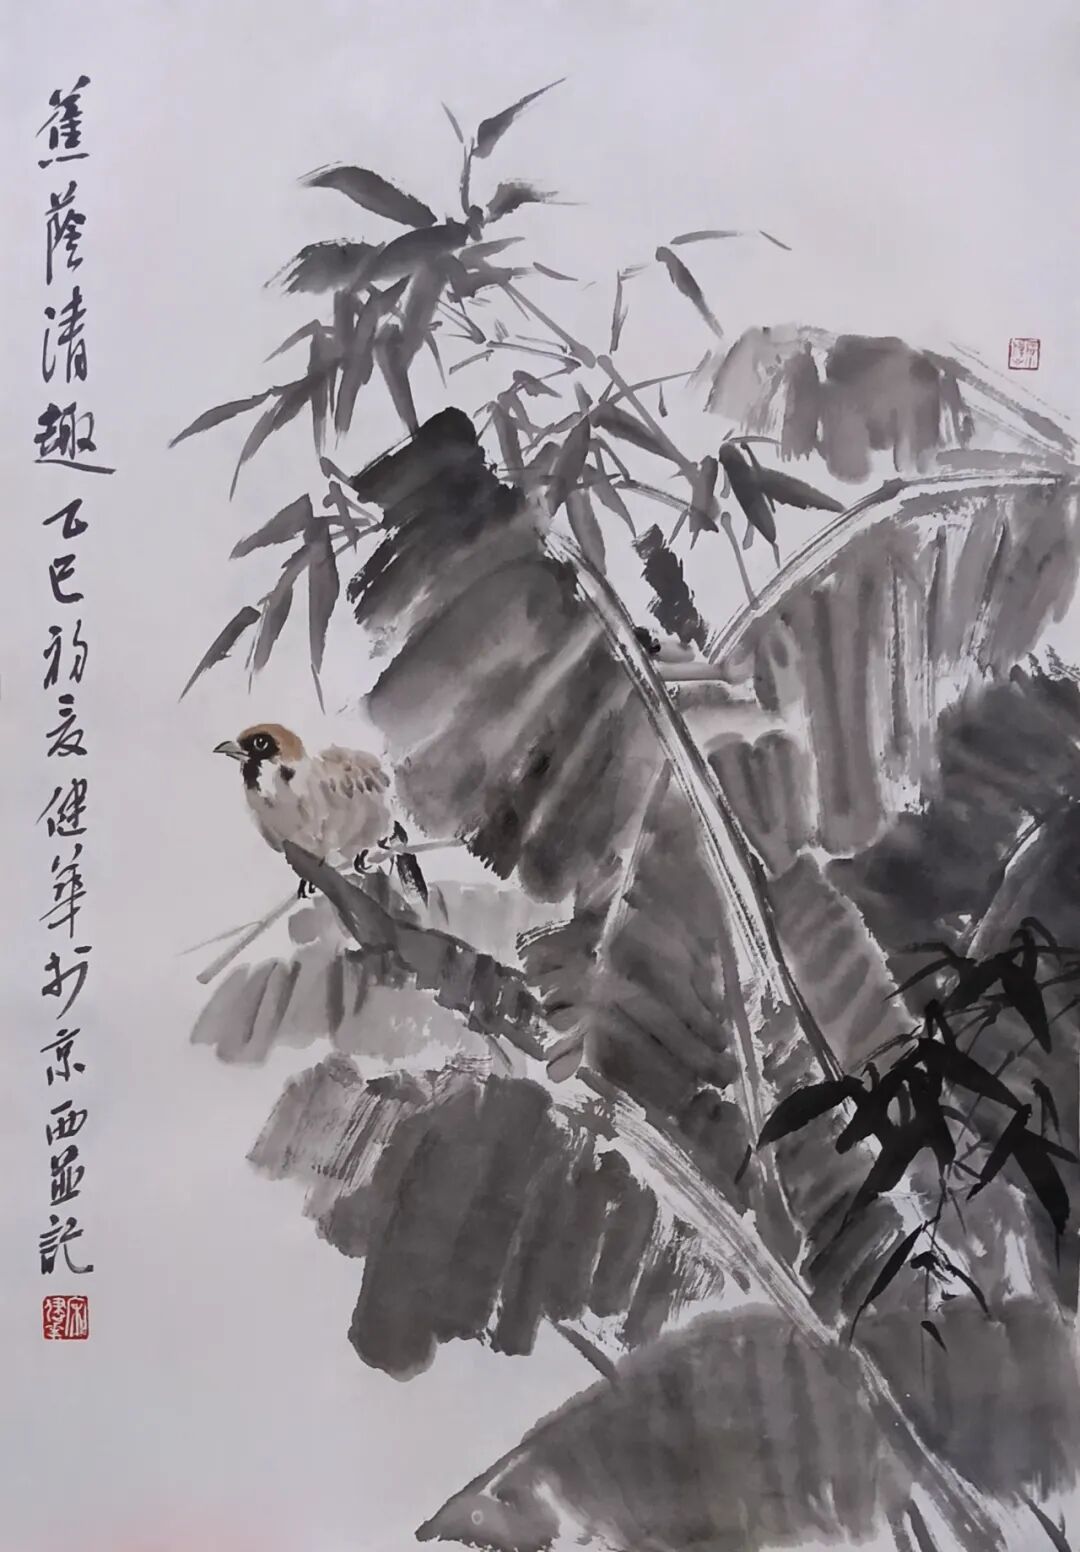 蕉蔭清趣乙巳初夏健華於京西並記